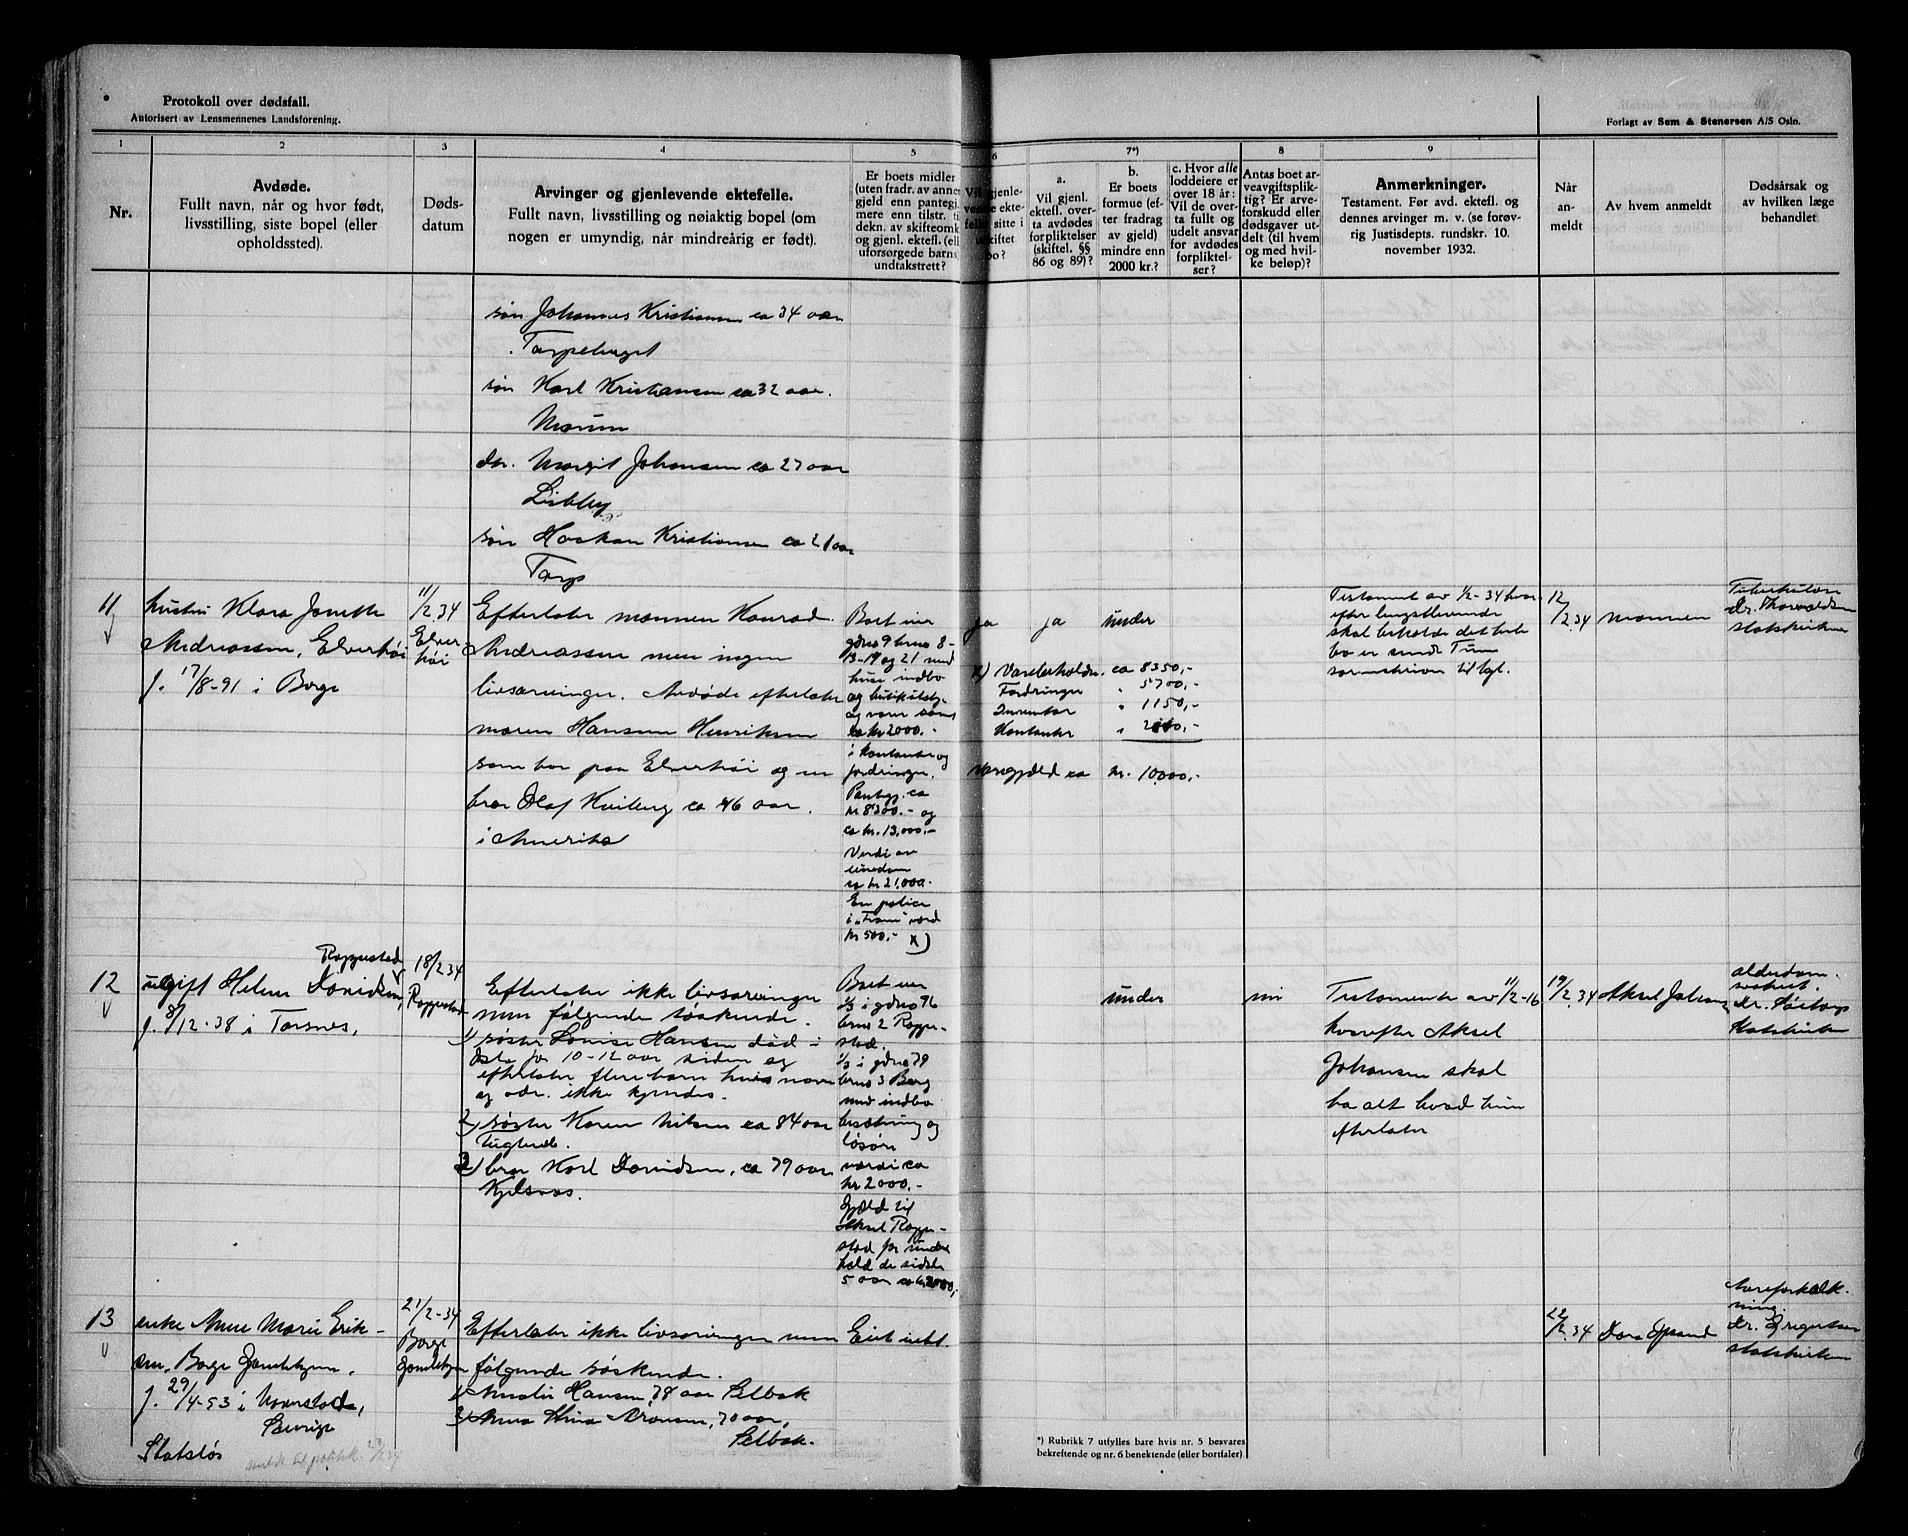 Protokoll over dødsfall.
Autorisert av Lensmennenes Landsforening.
Forlagt av Sem & Stenersen A/S Oslo.
1
2
3
4
5
6
7*)
8
9
Nr.
Avdøde.
Fullt navn, når og hvor født,
livsstilling, siste bopel (eller
opholdssted).
Døds-
datum
Arvinger og gjenlevende ektefelle.
Fullt navn, livsstilling og nøiaktig bopel (om
nogen er umyndig, når mindreårig er født).
Er boets midler
(uten fradr. av annen
gjeld enn pantegj.
mere enn tilstr. ti
dekn. av skifteomk
og gjenl. ektefl. (ell
uforsørgede barns
undtakstrett?
Vil gjenle-
vende ekte-
felle sitte i
uskiftet
bo?
a.
Vil gjenl.
ektefl. over-
ta avdødes
forpliktelser
(skiftel. §§
86 og 89)?
b.
Er boets
formue (ef-
ter fradrag
av gjeld)
mindre enn
2000 kr.?
c. Hvor alle
loddeiere er
over 18 år:
Vil de over-
ta fullt og
udelt ansvar
for avdødes
forpliktel-
ser?
Antas boet ar-
veavgiftsplik-
tig? Er arve-
forskudd eller
dødsgaver ut-
delt (til hvem
og med hvil-
ke beløp)?
Anmerkninger.
Testament. Før avd. ektefl. og
dennes arvinger m. v. (se forøv-
rig Justisdepts. rundskr. 10.
november 1932.
Når
an-
meldt
Av hvem anmeldt
Dødsårsak og
av hvilken læge
behandlet
søn Johannes Kristiansen ca 34 aar
Torpehaget
søn Karl Kristiansen ca 32 aar.
Moum
dtr. Margit Johansen ca 27 aar
Lisleby
søn Haakon Kristiansen ca 21 aar
Torp
11
hustru Klara Janette
Andreassen, Elverhöi
f. 17/8-91 i Borge
11/2 34
Elver
höi
Efterlater mannen Konrad
Andreassen men ingen
livsarvinger. Avdøde efterlater
moren Hansine Henriksen
som bor paa Elverhöi og en
bror Olaf Kviberg ca 46 aar.
i Amerika
Boet eier
gdno 9 bno 8-
13-19 og 21 med
huse indbo
og butikutsty-
og varer samt
ca kr 2000.-
i kontanter og
fordringer.
Pantegj. ca
kr 8300.- og
ca kr. 13,000.-
Verdi av
eiendom
ca kr 21,000.-
En police
i "Fram" værd
kr 500,- x)
ja
ja
under
x) Varebeholdn. ca 8350,-
Fordringer " 5700,-
Inventar " 1150,-
Kontanter "
Varegjæld ca kr. 10000,-
Testament av 1/2-34 hvor
efter lengstlevende
skal beholde det hele
bo er sendt Tune
sorenskriveri til tgl.
12/2.34
mannen
Tuberkulose
Dr. Thorvaldsen
statskirken
12
Roppestad
ugift Helene Davidsen,
f. 8/12-38 i Torsnes,
18/2 34
Roppestad
Efterlater ikke livsarvinger
men følgende søskende.
1) søster Lovise Hansen död i
Oslo for 10-12 aar siden og
efterlater flere barn hvis navn
og adr. ikke kjendes.
2) søster Karen Nilsen ca 84 aar
3) bror Karl Davidsen, ca 79 aar
Kjelsaas.
Boet eier
1/3 i gdno 96
bno 2 Roppe-
stad.
1/3 i gdno 79
bno 3 Berg
med indbo
besætning og
løsøre
værdi ca
kr 2000,-
Gjæld til
Aksel Roppe-
stad for under
hold de sidste
5 aar ca kr 2000,-
under
nei
Testamente av 11/2-16
hvorefter Aksel
Johansen skal
ha alt hvad hun
efterlater
19/2.34
Aksel Johansen
alderdom-
svakhet.
Dr.
statskirken
13
enke Anne Marie Erik-
sen, Borge Gamlehjem,
f. 29/4-53 i
Sverige
Statsløs
21/2-34
Borge
Gamlehjem
Efterlater ikke livsarvinger men
følgende søskende.
1) Amalie Hansen, 78 aar Selbak
2) Anna Stina Aronsen, 70 aar,
Selbak.
Eiet intet.
22/2.34
Dora
Aareforkalk-
ning.
Dr. Gregertsen
statskirken
*) Rubrikk 7 utfylles bare hvis nr. 5 besvares
bekreftende og nr. 6 benektende (eller bortfaler)